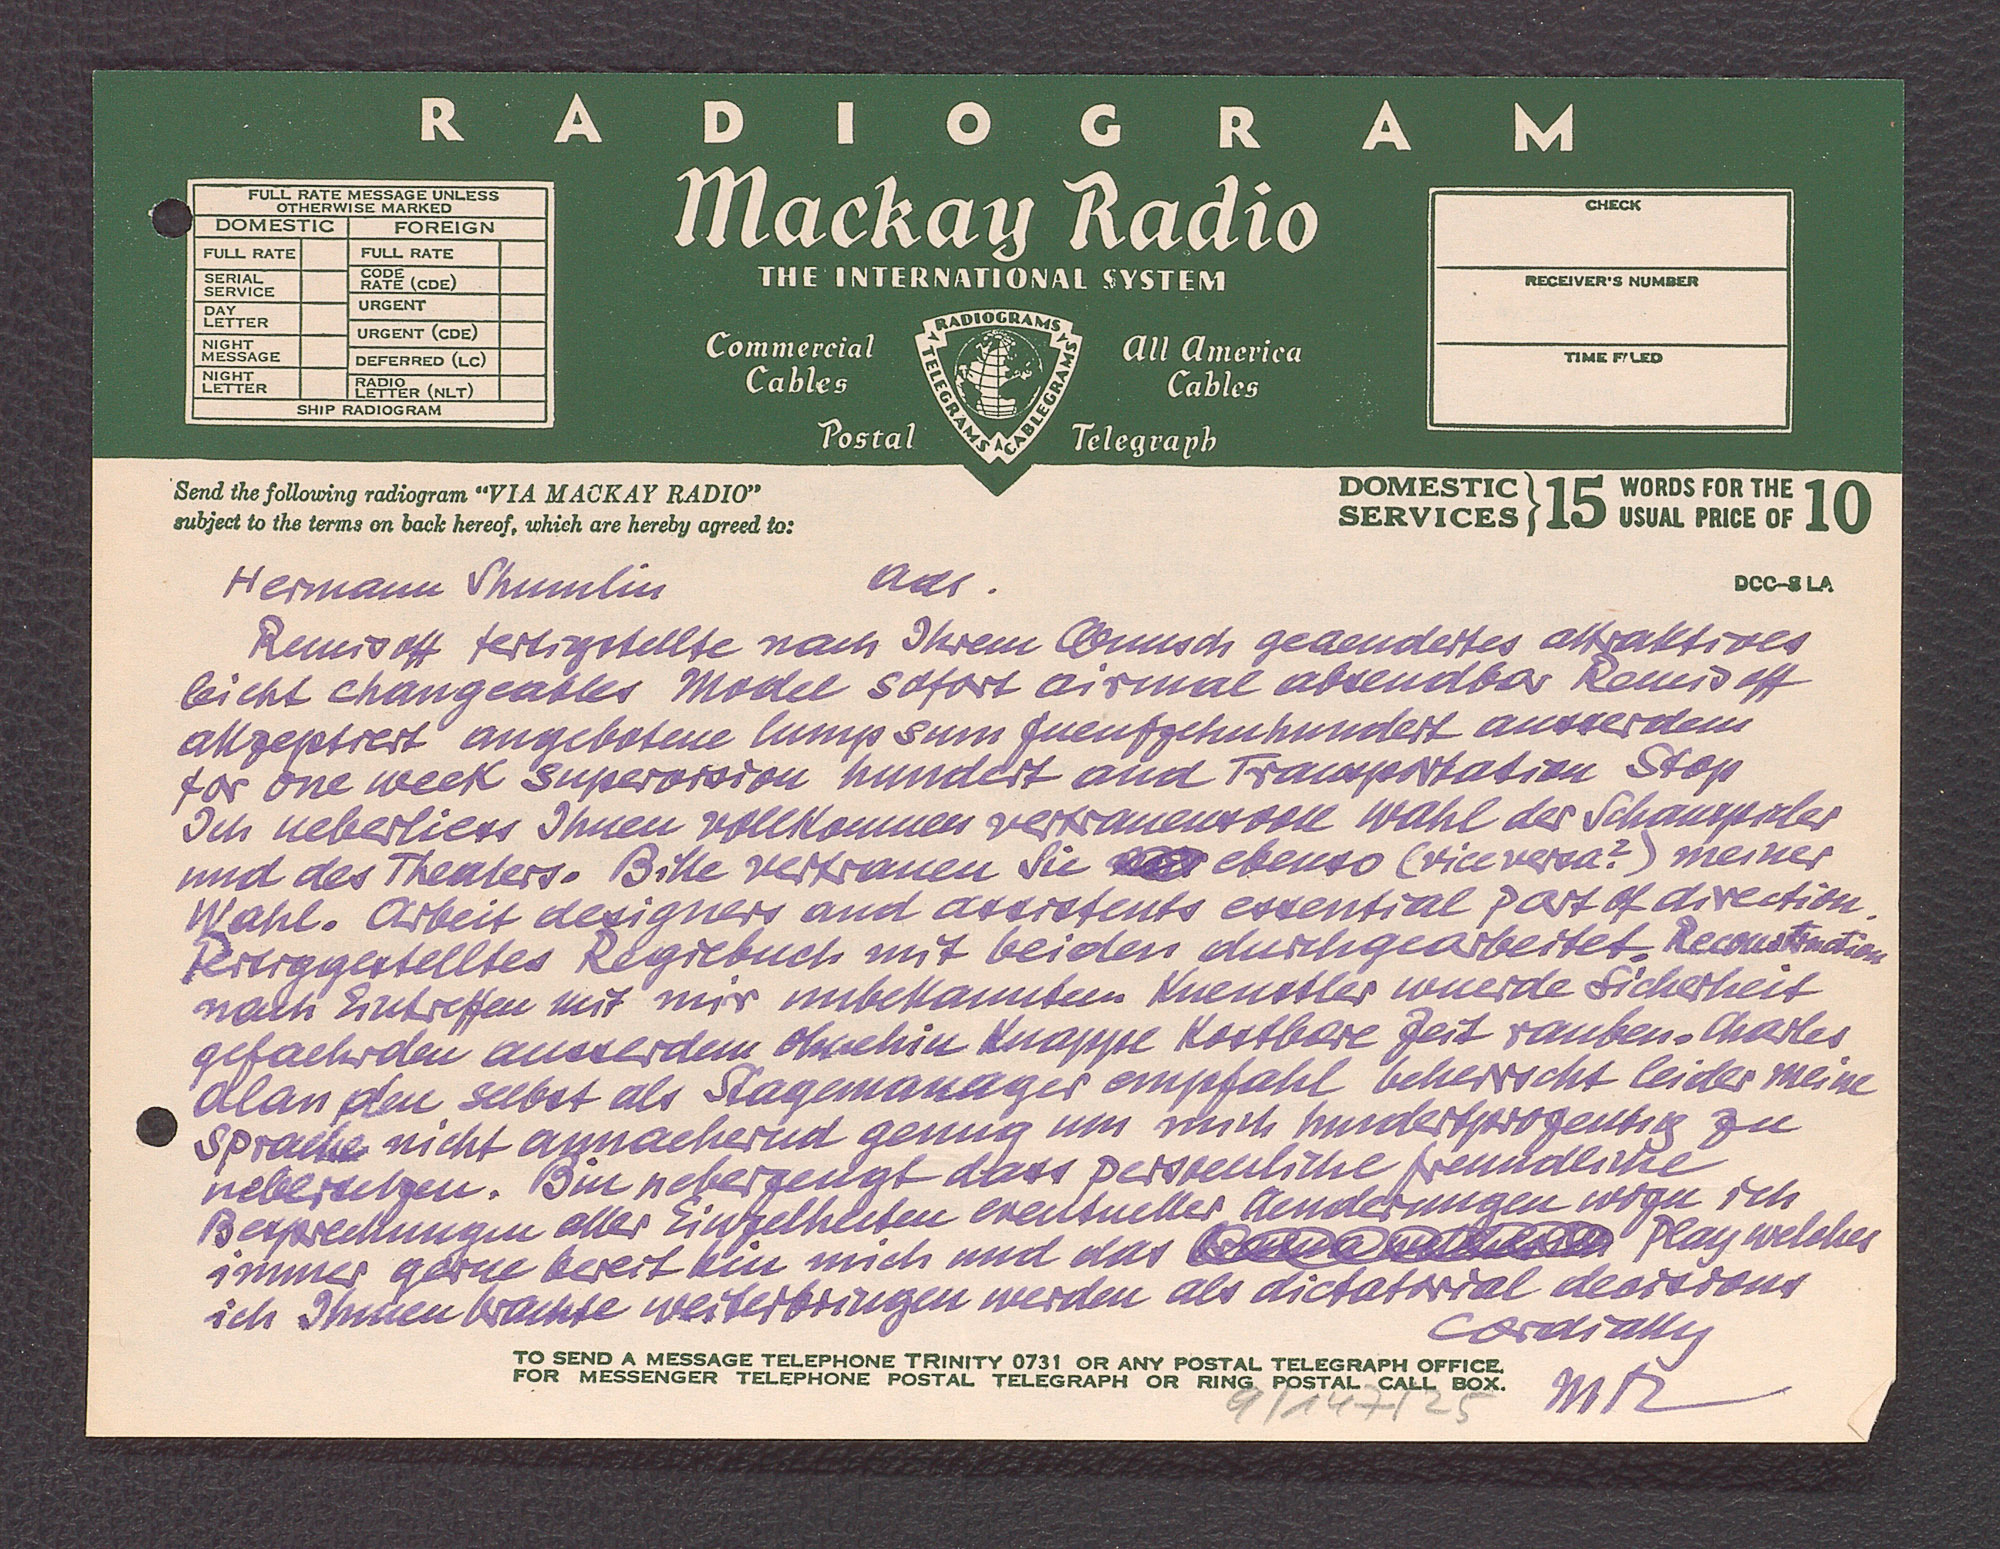 RADIOGRAM
Mackay Radio
THE INTERNATIONAL SYSTEM
FULL RATE MESSAGE UNLESS
OTHERWISE MARKED
DOMESTIC FOREIGN
FULL RATE FULL RATE
SERIAL SERVICE CODE RATE (CDE)
DAY LETTER URGENT
URGENT (CDE)
NIGHT MESSAGE DEFERRED (LC)
NIGHT LETTER RADIO LETTER (NLT)
SHIP RADIOGRAM
Commercial Cables
All America Cables
RADIOGRAMS
TELEGRAMS
CABLEGRAMS
Postal Telegraph
CHECK
RECEIVER'S NUMBER
TIME FILED
Send the following radiogram "VIA MACKAY RADIO"
subject to the terms on back hereof, which are hereby agreed to:
DOMESTIC SERVICES } 15 WORDS FOR THE USUAL PRICE OF 10
DCC-8 LA
Hermann Shumlin adr.
Remisoff fertigstellte nach Ihrem Wunsch geaendertes attraktives
leicht changeables Model sofort airmail absendbar Remisoff
akzeptiert angebotene lumpsum fuenfzehnhundert ausserdem
for one week supervision hundert and Transportation Stop
Ich ueberliess Ihnen vollkommen vertrauensvoll Wahl der Schauspieler
und des Theaters. Bitte vertrauen Sie ebenso (vice versa?) meiner
Wahl. Arbeit designers and assistents essential part of direction.
Fertiggestelltes Regiebuch mit beiden durchgearbeitet. Reconstruction
nach Eintreffen mit mir unbekannten Kuenstler wuerde Sicherheit
gefaehrden ausserdem ohnehin knappe kostbare Zeit rauben. Charles
Alan den selbst als Stagemanager empfahl beherrscht leider meine
Sprache nicht annaehernd genug um mich hundertprozentig zu
uebersetzen. Bin ueberzeugt dass persoenliche freundliche
Besprechungen aller Einzelheiten eventueller Aenderungen wozu ich
immer gerne bereit bin mich und das Play welches
ich Ihnen brachte weiterbringen werden als dictatorial decisions
Cordially
MR
TO SEND A MESSAGE TELEPHONE TRINITY 0731 OR ANY POSTAL TELEGRAPH OFFICE.
FOR MESSENGER TELEPHONE POSTAL TELEGRAPH OR RING POSTAL CALL BOX.
9/147/25